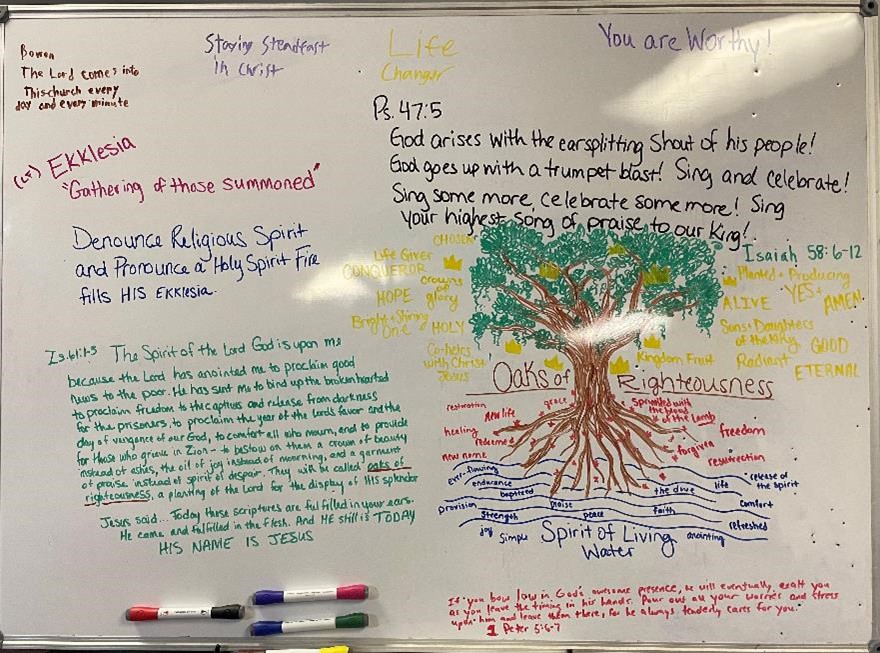 Bowen
The Lord comes into
This church every
day and every minute
Staying Steadfast
in Christ
Life
Changer
You are Worthy!
Ps. 47:5
God arises with the earsplitting Shout of his people!
God goes up with a trumpet blast! Sing and celebrate!
Sing some more, celebrate some more! Sing
your highest song of praise to our King!
EKKlesia
"Gathering of those summoned"
Denounce Religious Spirit
and Pronounce a Holy Spirit Fire
fills HIS EKKlesia.
Is. 61:1-3 The Spirit of the Lord God is upon me
because the Lord has anointed me to proclaim good
news to the poor. He has sent me to bind up the brokenhearted
to proclaim freedom to the captives and release from darkness
for the prisoners, to proclaim the year of the Lord's favor and the
day of vengance of our God, to comfort all who mourn, and to provide
for those who grieve in Zion - to bestow on them a crown of beauty
instead of ashes, the oil of joy instead of mourning, and a garment
of praise instead of spirit of despair. They will be called oaks of
righteousness, a planting of the Lord for the display of His splendor
Jesus said... Today these scriptures are fulfilled in your ears.
He came and fulfilled in the flesh. And HE still is TODAY
HIS NAME IS JESUS
CHOSEN
Life Giver
CONQUEROR
crowns
of
glory
HOPE
Bright + Shining
One
HOLY
Co-heirs
with Christ
Jesus
Isaiah 58:6-12
Planted + Producing
YES +
AMEN
ALIVE
Sons + Daughters
of the King
GOOD
Radiant
ETERNAL
Kingdom Fruit
Oaks of Righteousness
restoration
new life
grace
healing
redeemed
new name
Sprinkled with
the blood
of the Lamb
freedom
forgiven
resurrection
ever-flowing
endurance
baptized
provision
praise
strength
peace
faith
the dove
life
release of
the Spirit
comfort
refreshed
joy
simple
anointing
Spirit of Living
Water
If you bow low in God's awesome presence, he will eventually exalt you
as you leave the timing in his hands. Pour out all your worries and stress
upon him and leave them there, for he always tenderly cares for you.
1 Peter 5:6-7